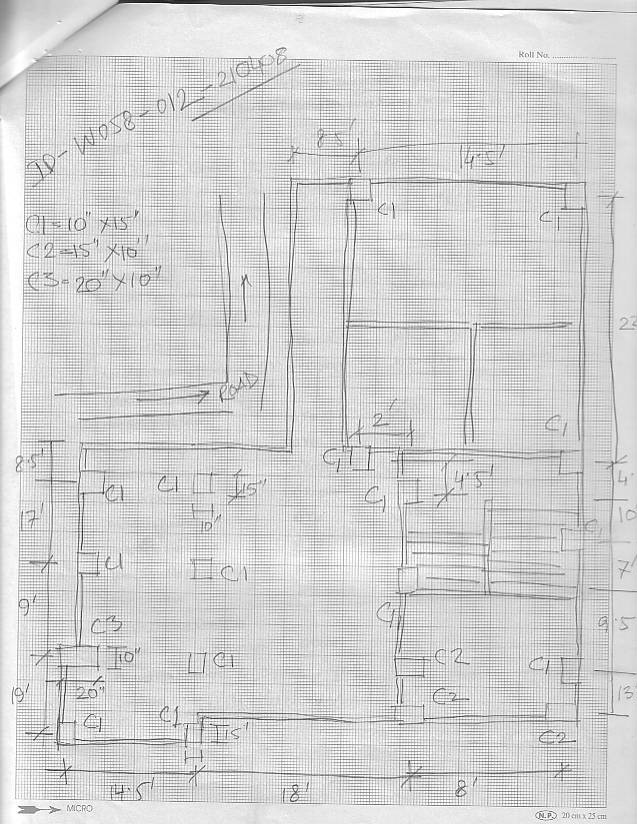 Roll No.
ID-W058-012-210408
8.5'
14.5'
C1=10"X15"
C2=15"X10"
C3=20"X10"
C1
C1
22
ROAD
2'
C1
C1
8.5'
C1
C1
15"
C1
4.5'
4'
10"
17'
10
C1
C1
C1
7'
9'
C1
C3
10"
C1
C2
C1
9.5
19'
20"
C2
13'
C1
C1
15'
C2
14.5'
18'
8'
MICRO
N.P. 20 cm x 25 cm